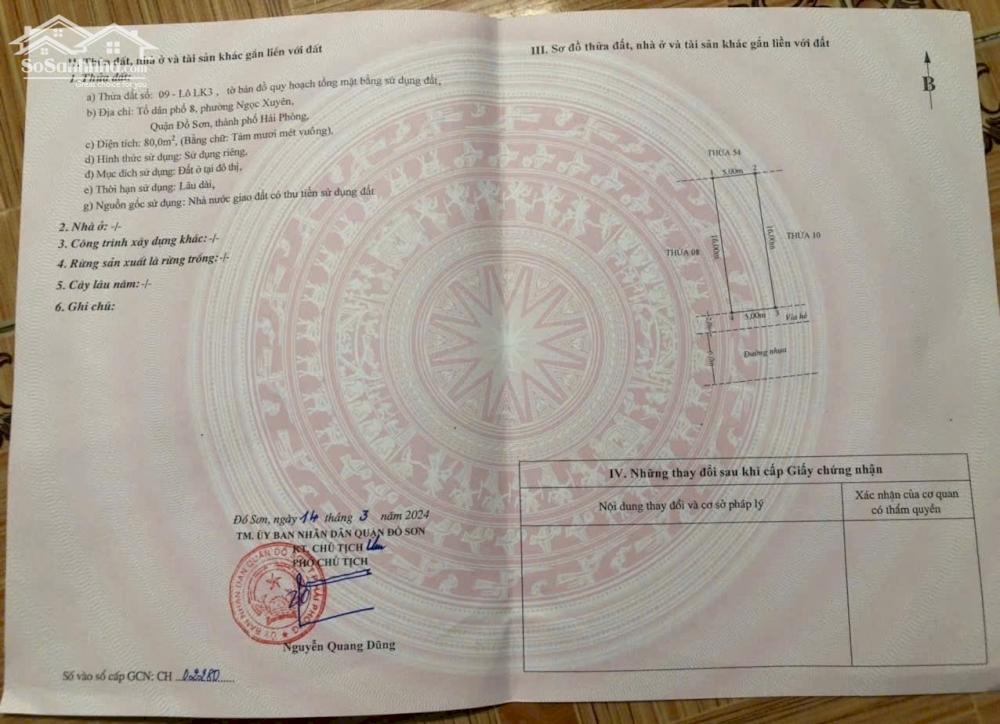 SoSanhNha.com
Great choice for you
II. Thửa đất, nhà ở và tài sản khác gắn liền với đất
1. Thửa đất:
a) Thửa đất số: 09 - Lô LK3 , tờ bản đồ quy hoạch tổng mặt bằng sử dụng đất,
b) Địa chỉ: Tổ dân phố 8, phường Ngọc Xuyên,
Quận Đồ Sơn, thành phố Hải Phòng,
c) Diện tích: 80,0m², (Bằng chữ: Tám mươi mét vuông),
d) Hình thức sử dụng: Sử dụng riêng,
đ) Mục đích sử dụng: Đất ở tại đô thị,
e) Thời hạn sử dụng: Lâu dài,
g) Nguồn gốc sử dụng: Nhà nước giao đất có thu tiền sử dụng đất
2. Nhà ở: -/-
3. Công trình xây dựng khác: -/-
4. Rừng sản xuất là rừng trồng: -/-
5. Cây lâu năm: -/-
6. Ghi chú:
Đồ Sơn, ngày 14 tháng 3 năm 2024
TM. ỦY BAN NHÂN DÂN QUẬN ĐỒ SƠN
KT. CHỦ TỊCH
PHÓ CHỦ TỊCH
Nguyễn Quang Dũng
Số vào sổ cấp GCN: CH 02280
III. Sơ đồ thửa đất, nhà ở và tài sản khác gắn liền với đất
B
THỬA 54
5,00m 2
16,00m
16,00m
THỬA 08
THỬA 10
4 5,00m 3
Vỉa hè
Đường nhựa
IV. Những thay đổi sau khi cấp Giấy chứng nhận
Nội dung thay đổi và cơ sở pháp lý
Xác nhận của cơ quan
có thẩm quyền